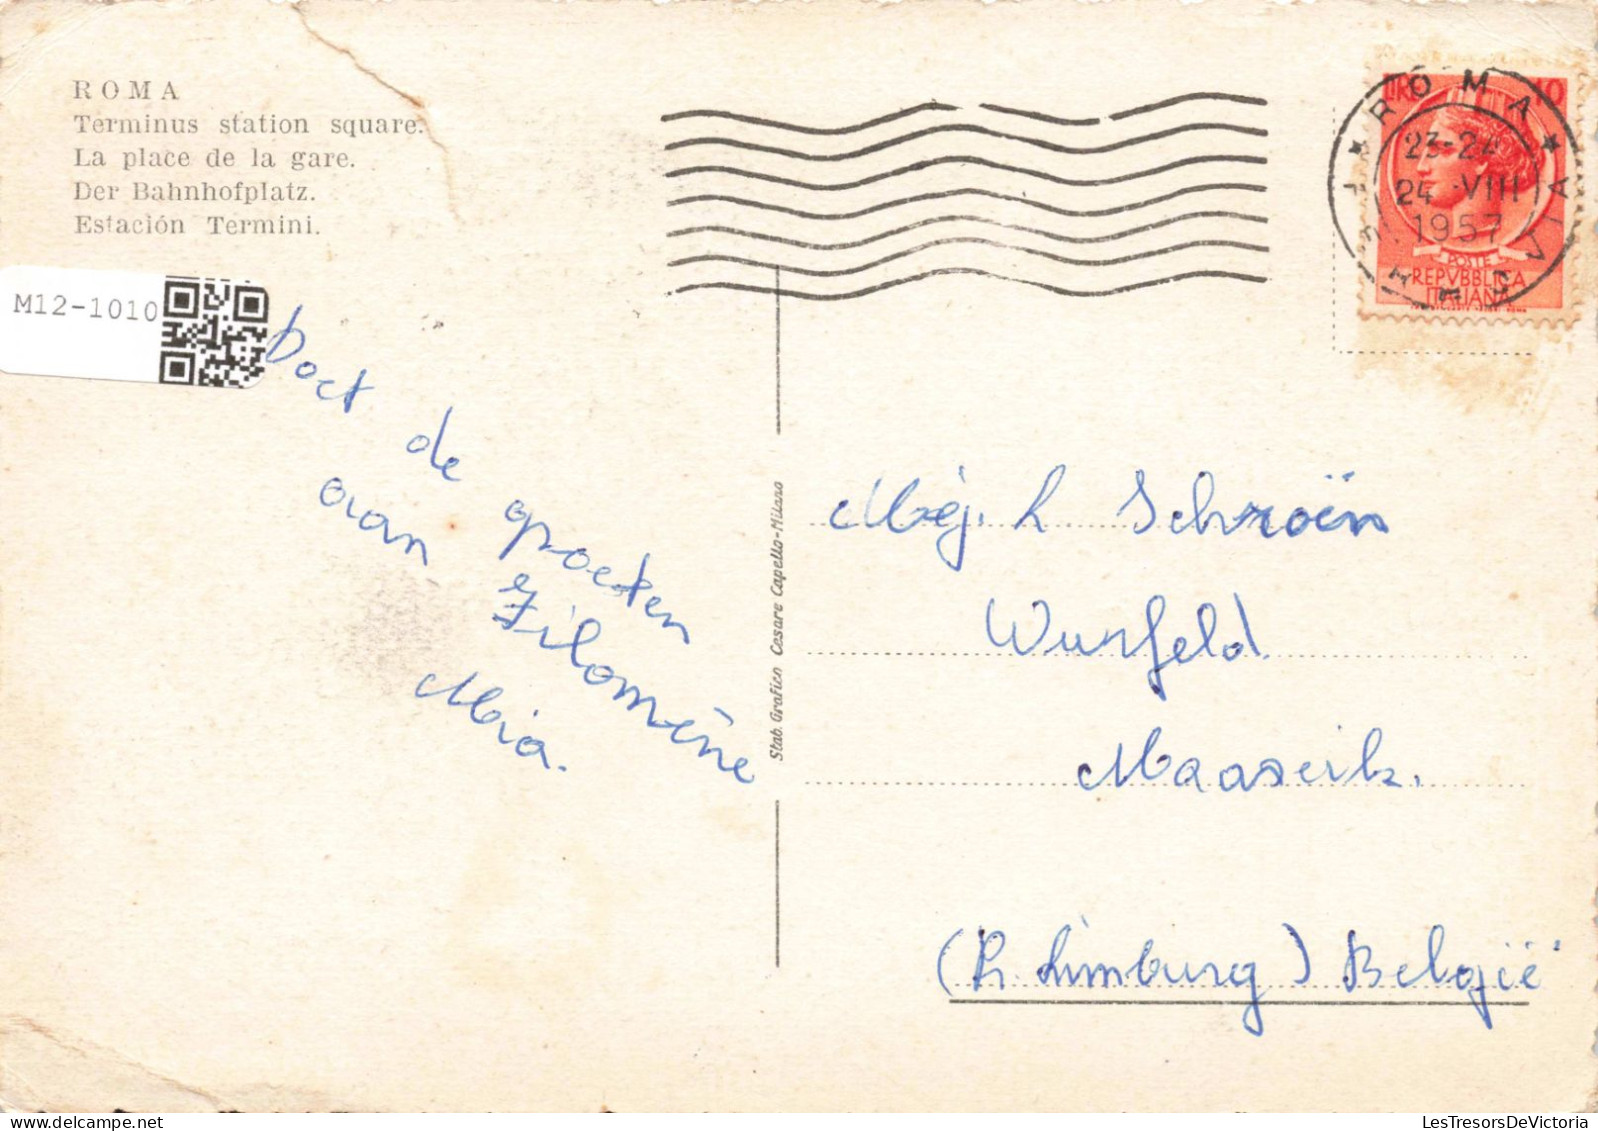 ROMA
Terminus station square.
La place de la gare.
Der Bahnhofplatz.
Estación Termini.
M12-1010
Doet de
groeten
aan Filomène
Mia.
Stab. Grafico Cesare Capello-Milano
ROMA
23-24
24 VIII
1957
LIRE 10
POSTE
REPVBBLICA
ITALIANA
Mej. L Schroën
Wurfeld
Maaseik.
(P. Limburg) België
LesTresorsDeVictoria